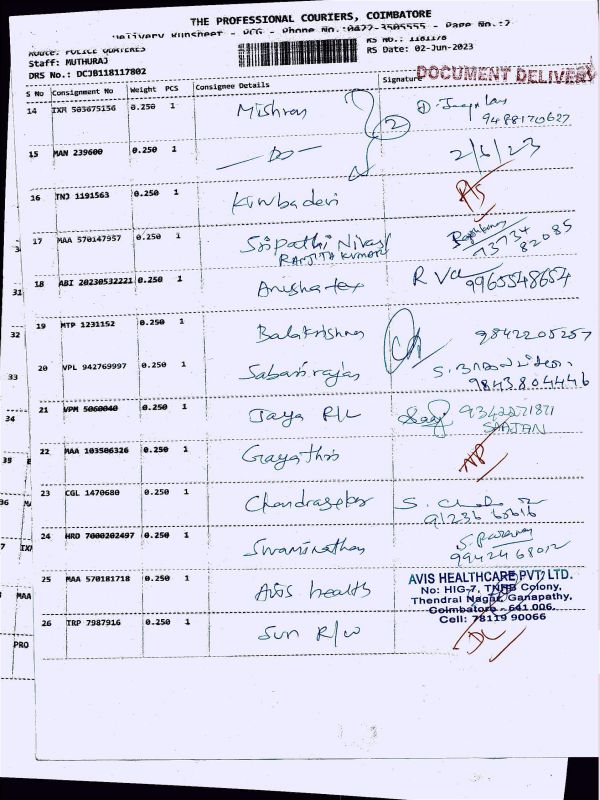 THE PROFESSIONAL COURIERS, COIMBATORE
Delivery Runsheet - PCG - Phone No.:0422-3505555 - Page No.:2
Route: POLICE QUATERES
RS No.: 1181178
Staff: MUTHURAJ
RS Date: 02-Jun-2023
DRS No.: DCJB118117802
DOCUMENT DELIVERY
S No Consignment No Weight PCS Consignee Details Signature
14 IXR 503675156 0.250 1 Mishran
9488170627
15 MAN 239600 0.250 1 Do 2/6/23
16 TNJ 1191563 0.250 1 Kumbadevi
17 MAA 570147957 0.250 1 Sripathi Nivas/
RANJITH KUMAR 73734 82085
18 ABI 20230532221 0.250 1 Anusha tex 9965548654
19 MTP 1231152 0.250 1 Balakrishna 9842205257
20 VPL 942769997 0.250 1 Sabarirajan
9843804446
21 VPM 5060040 0.250 1 Jaya R/L 9342271871
SAAJAN
22 MAA 103506326 0.250 1 Gayathri NP
23 CGL 1470680 0.250 1 Chandrasekar
91236 65616
24 HRD 7000202497 0.250 1 Swaminathan
99424 68012
25 MAA 570181718 0.250 1 Avis health
AVIS HEALTHCARE PVT. LTD.
No: HIG-7, TNHB Colony,
Thendral Nagar, Ganapathy,
Coimbatore - 641 006.
Cell: 78119 90066
26 TRP 7987916 0.250 1 Sun R/W DL
31
32
33
34
35
MAA
PRO